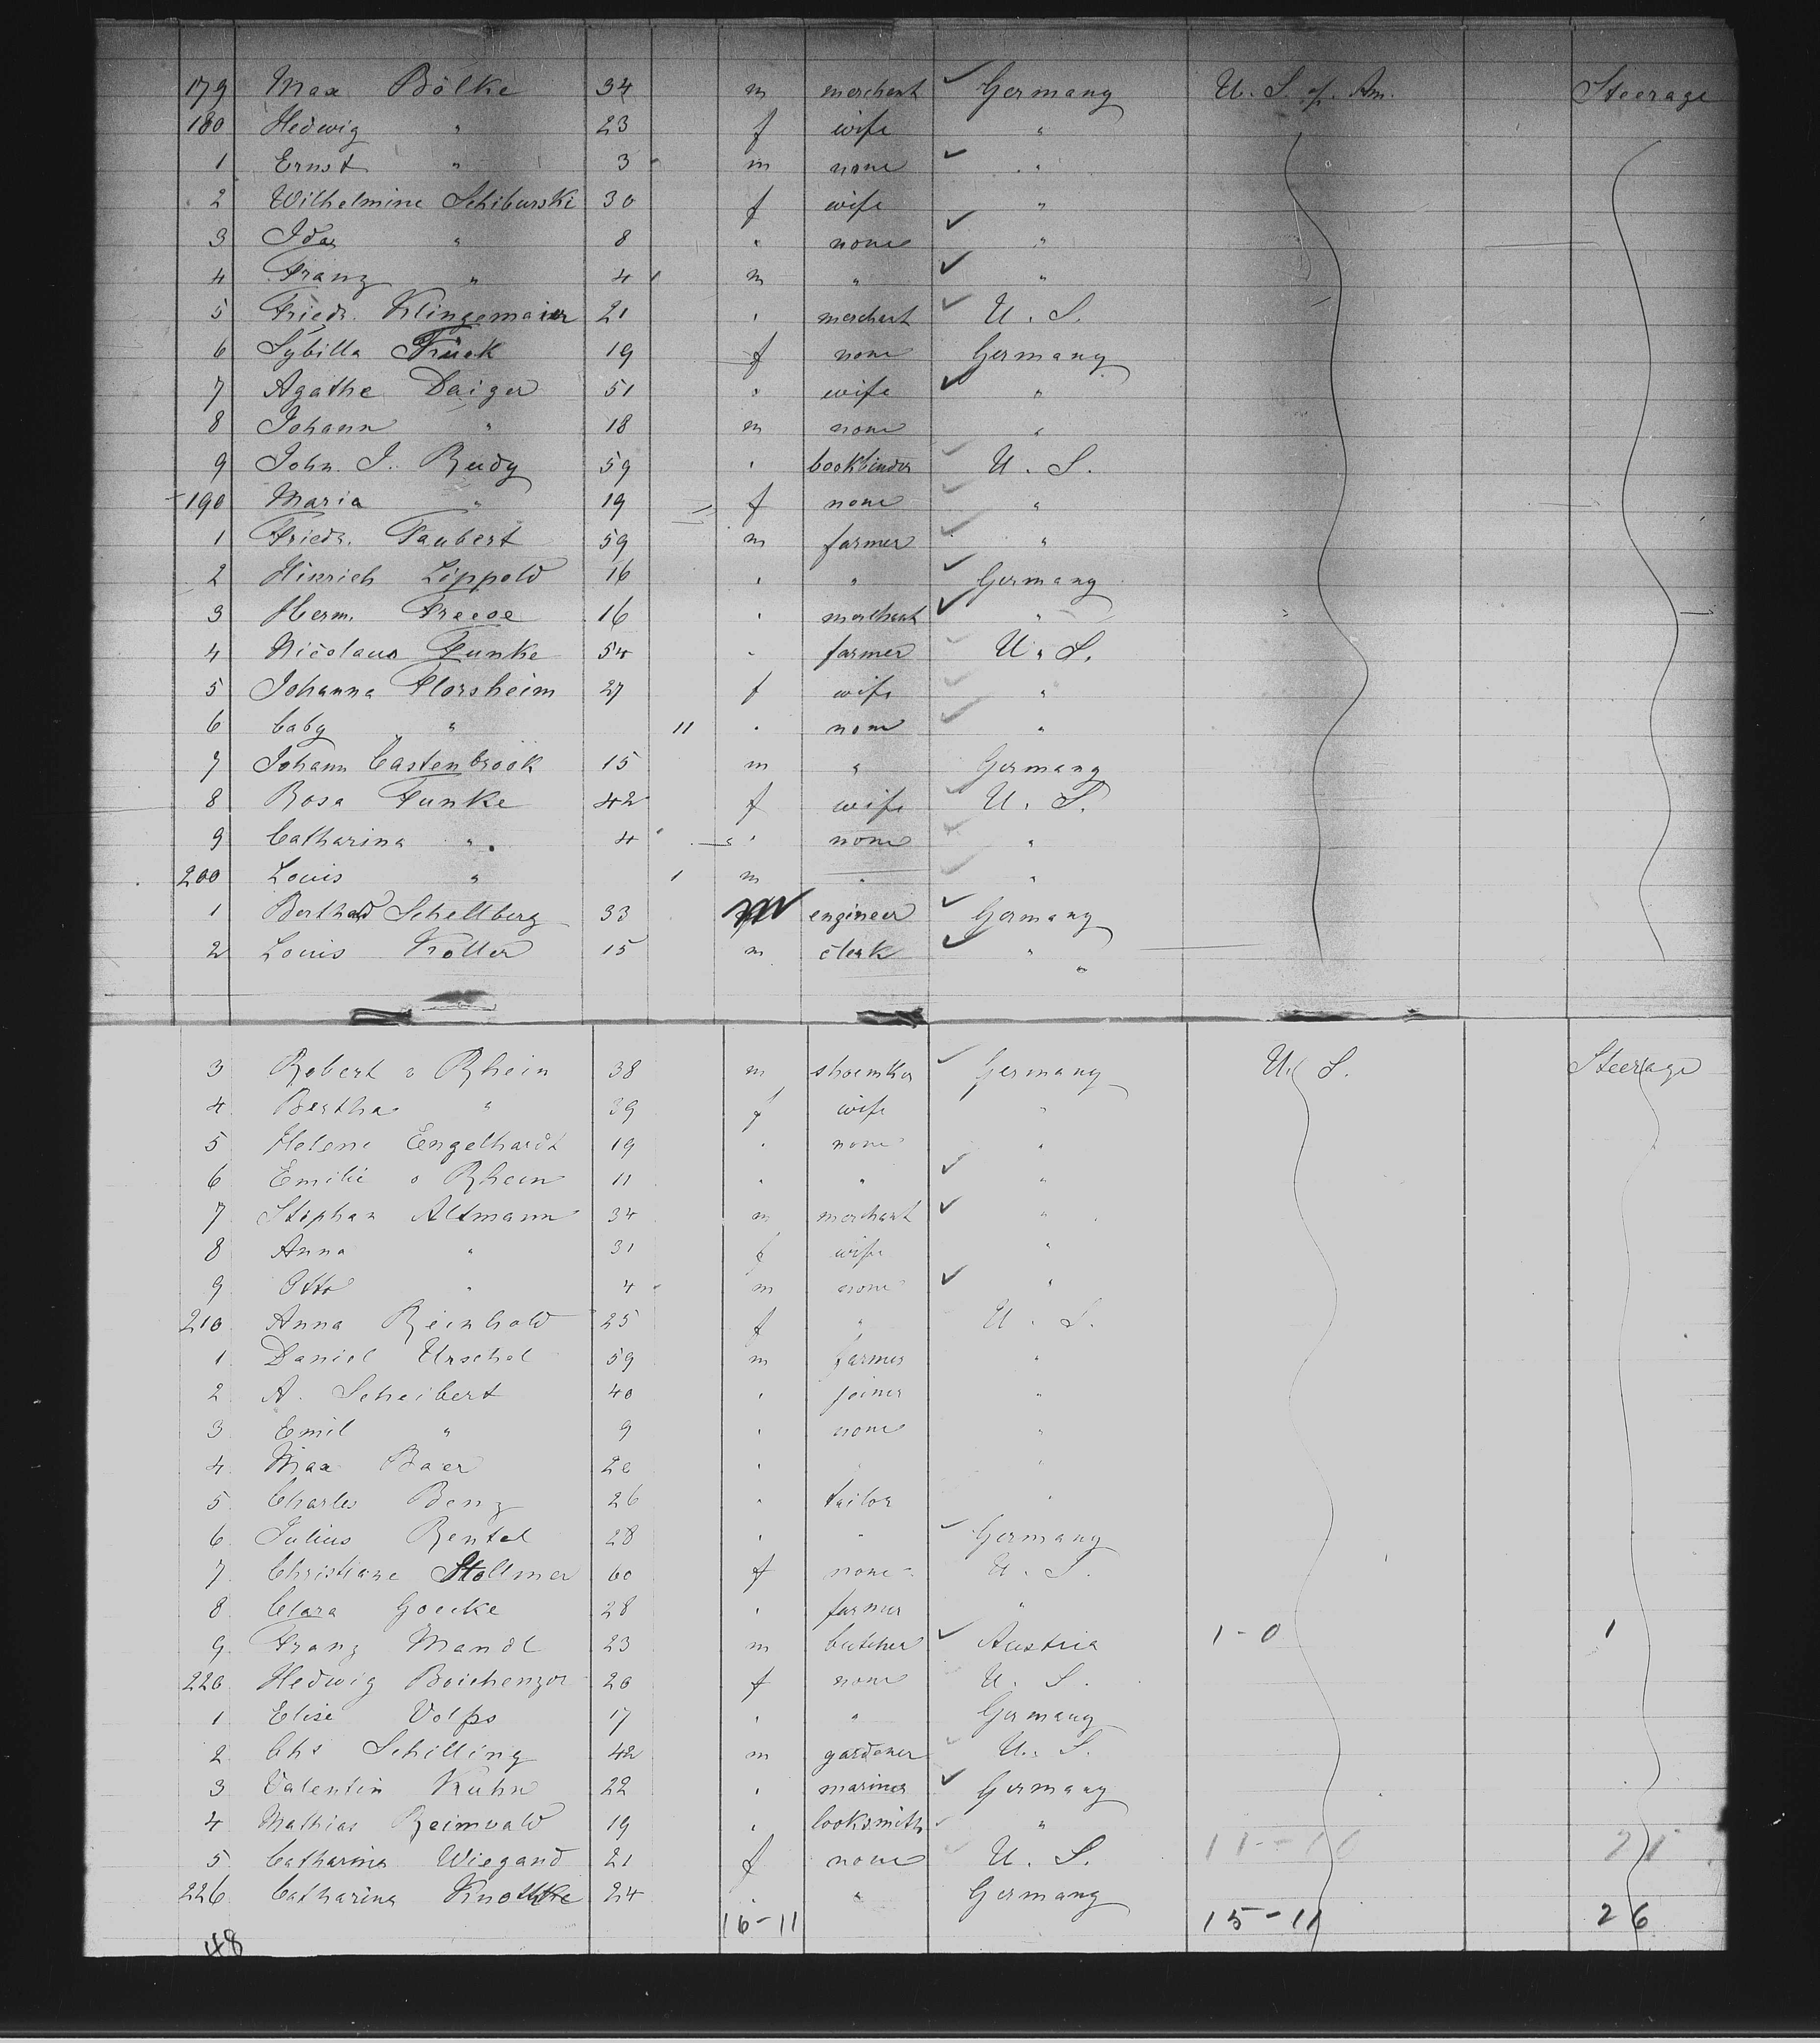 179 Max Bölke 34 m merchant ✓ Germany U. S. of Am. Steerage
180 Hedwig " 23 f wife "
1 Ernst " 3 m none ✓ "
2 Wilhelmine Schiburski 30 f wife "
3 Ida " 8 " none ✓ "
4 Franz " 4 m " ✓ "
5 Friedr. Klingemaier 21 " merchant ✓ U. S.
6 Sybilla Frück 19 f none Germany
7 Agathe Daiger 51 " wife ✓ "
8 Johann " 18 m none "
9 John J. Rudy 59 " bookbinder ✓ U. S.
190 Maria " 19 f none ✓ "
1 Friedr. Taubert 59 m farmer ✓ "
2 Hinrich Lippold 16 " " ✓ Germany
3 Herm. Freese 16 " merchant ✓ "
4 Nicolaus Funke 54 " farmer ✓ U. S.
5 Johanna Florsheim 27 f wife ✓ "
6 baby " 11 " none ✓ "
7 Johann Castenbrook 15 m " Germany
8 Rosa Funke 42 f wife ✓ U. S.
9 Catharina " 4 " none ✓ "
200 Louis " 1 m " ✓ "
1 Berthold Schellberg 33 m engineer ✓ Germany
2 Louis Koller 15 m clerk ✓ "
"
3 Robert v Rhein 38 m shoemker ✓ Germany U. S. Steerage
4 Bertha " 39 f wife "
5 Helene Engelhardt 19 " none "
6 Emilie v Rhein 11 " " ✓ "
7 Stephan Altmann 34 m merchant ✓ "
8 Anna " 31 f wife "
9 Otto " 4 m none ✓ "
210 Anna Reinhold 25 f " U. S.
1 Daniel Urschel 59 m farmer "
2 A. Scheibert 40 " joiner "
3 Emil " 9 " none "
4 Max Baer 20 " " "
5 Charles Benz 26 " tailor "
6 Julius Rentel 28 " " ✓ Germany
7 Christiane Stollmer 60 f none U. S.
8 Clara Goecke 28 " farmer "
9 Franz Mandl 23 m butcher ✓ Austria 1-0 1
220 Hedwig Boichenzor 20 f none U. S.
1 Elise Volps 17 " " Germany
2 Chs Schilling 42 m gardener ✓ U. S.
3 Valentin Kuhn 22 " mariner ✓ Germany
4 Mathias Reimvald 19 " locksmith ✓ "
5 Catharina Wiegand 21 f none ✓ U. S.
226 Catharina Knothke 24 " " Germany
16-11 15-11 26
48